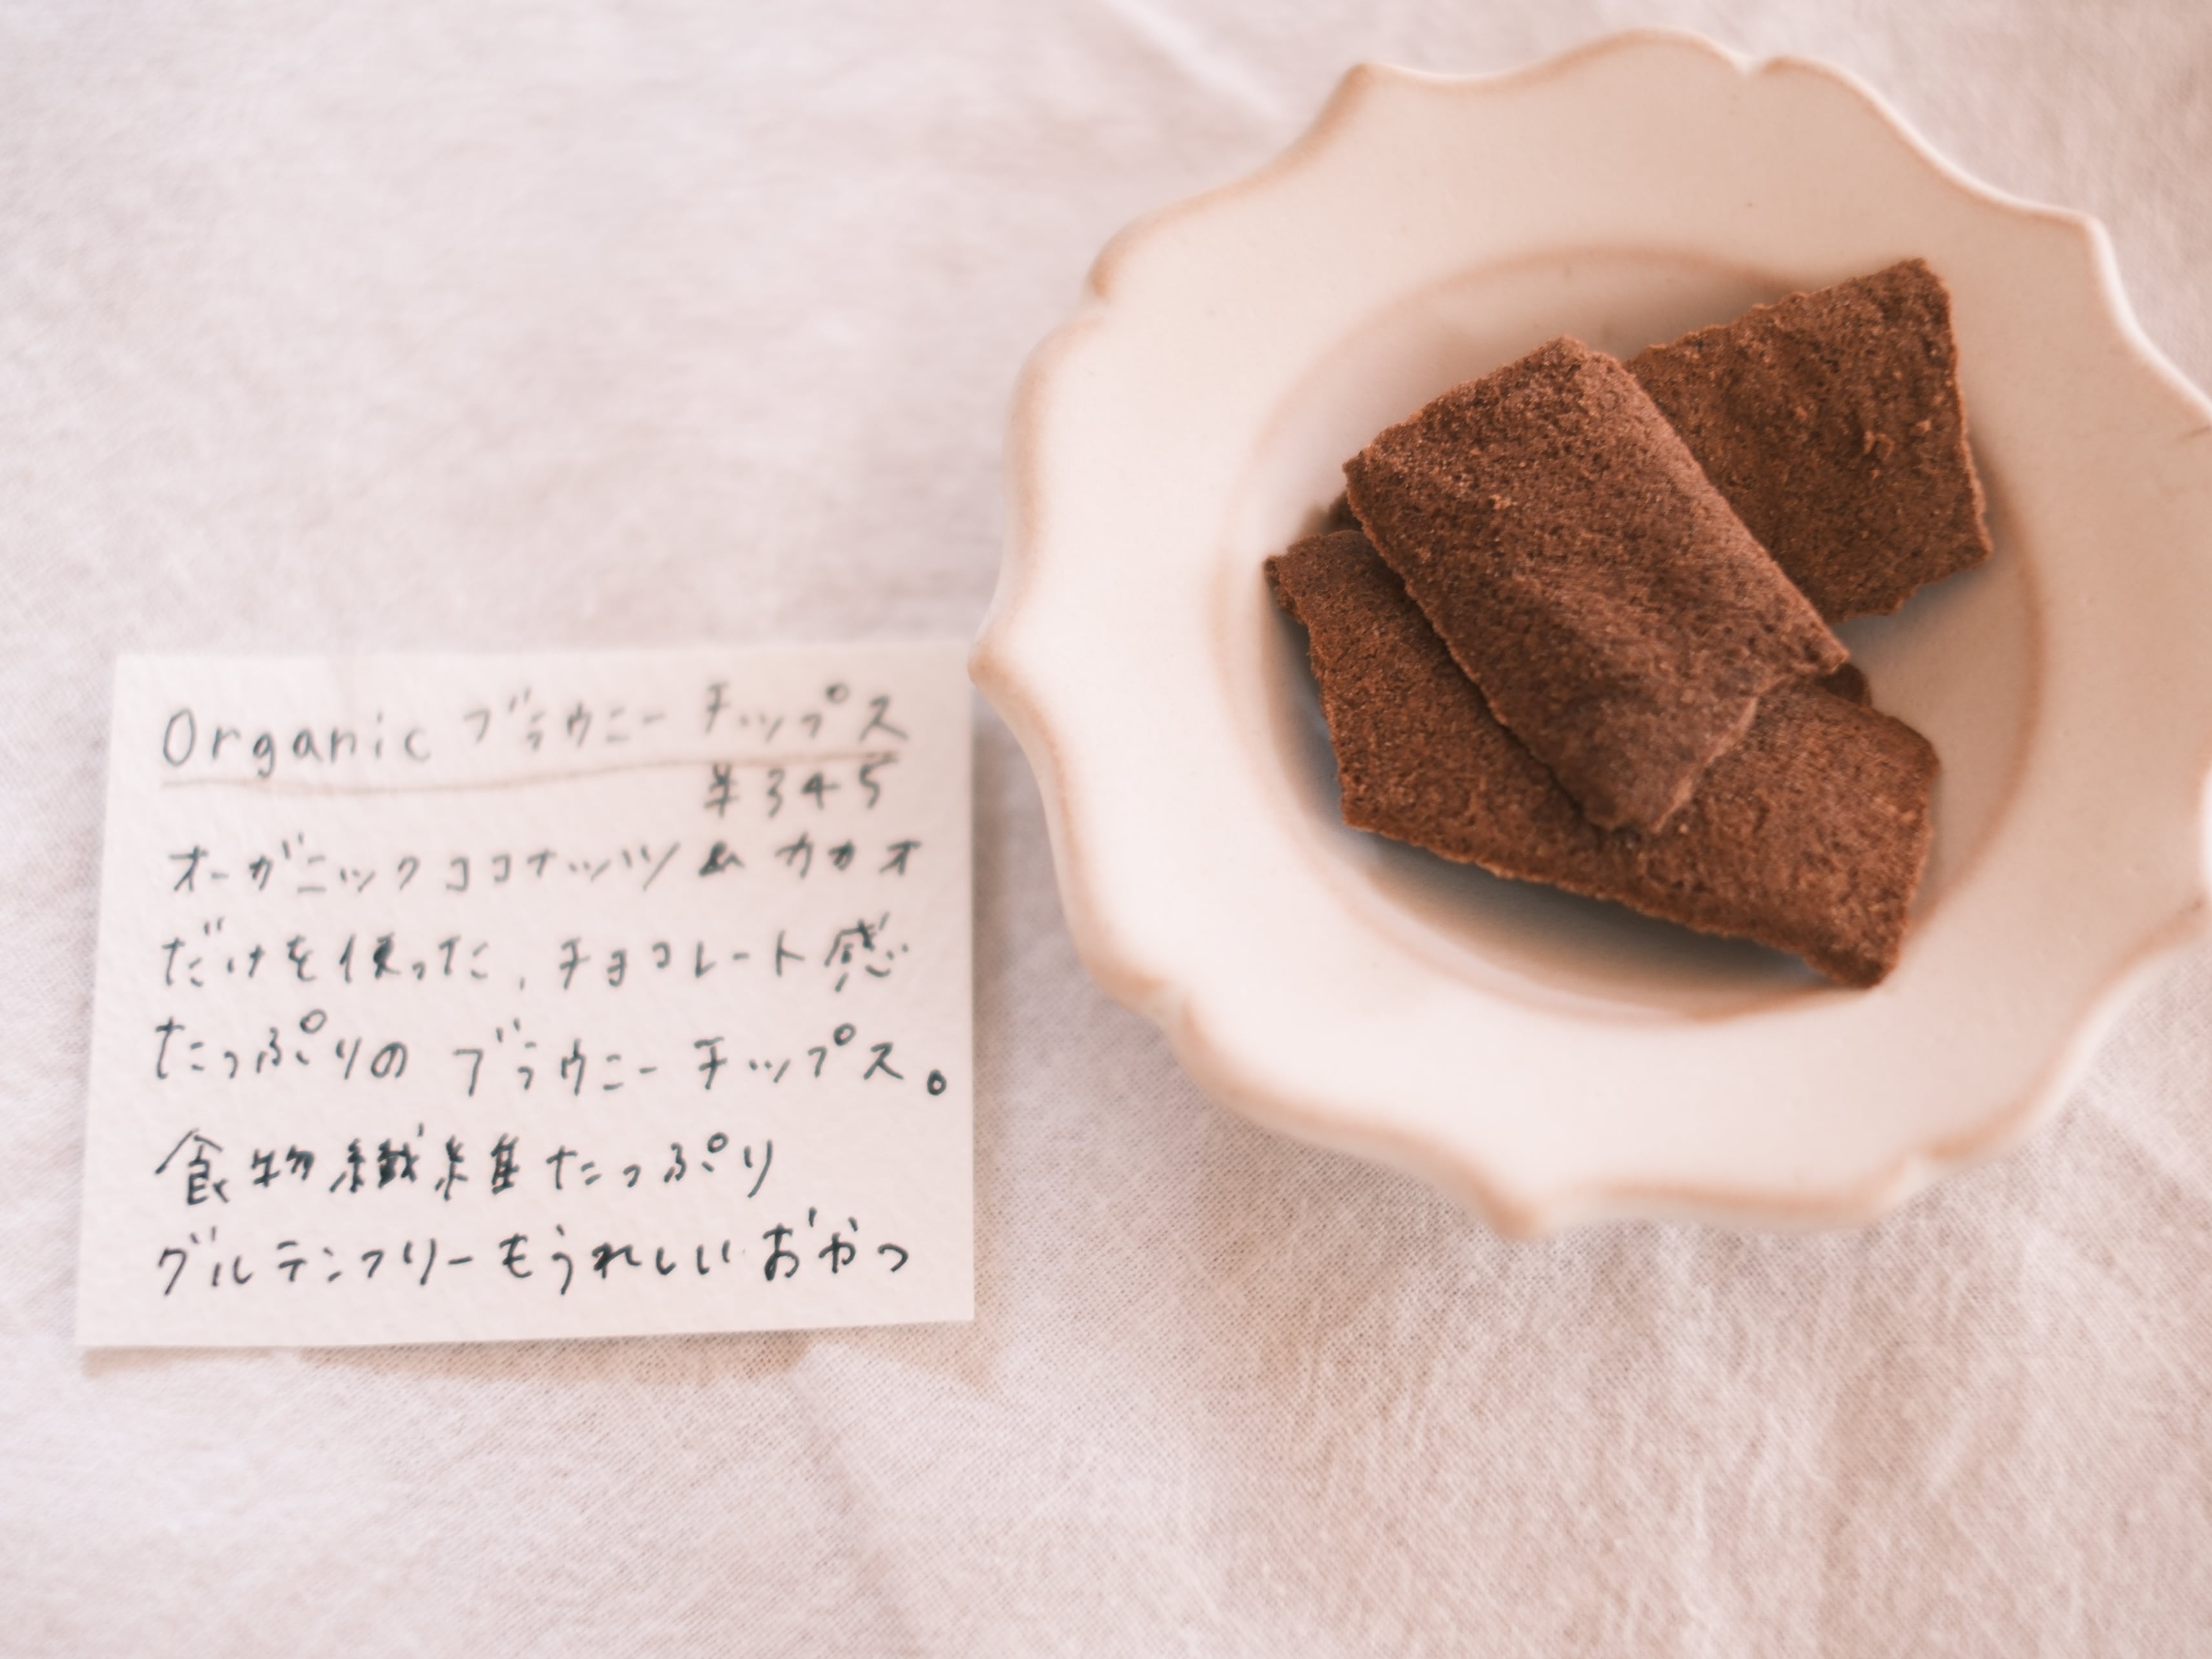 Organic ブラウニーチップス
¥345
オーガニックココナッツ&カカオ
だけを使った、チョコレート感
たっぷりの ブラウニーチップス。
食物繊維たっぷり
グルテンフリーもうれしいおやつ